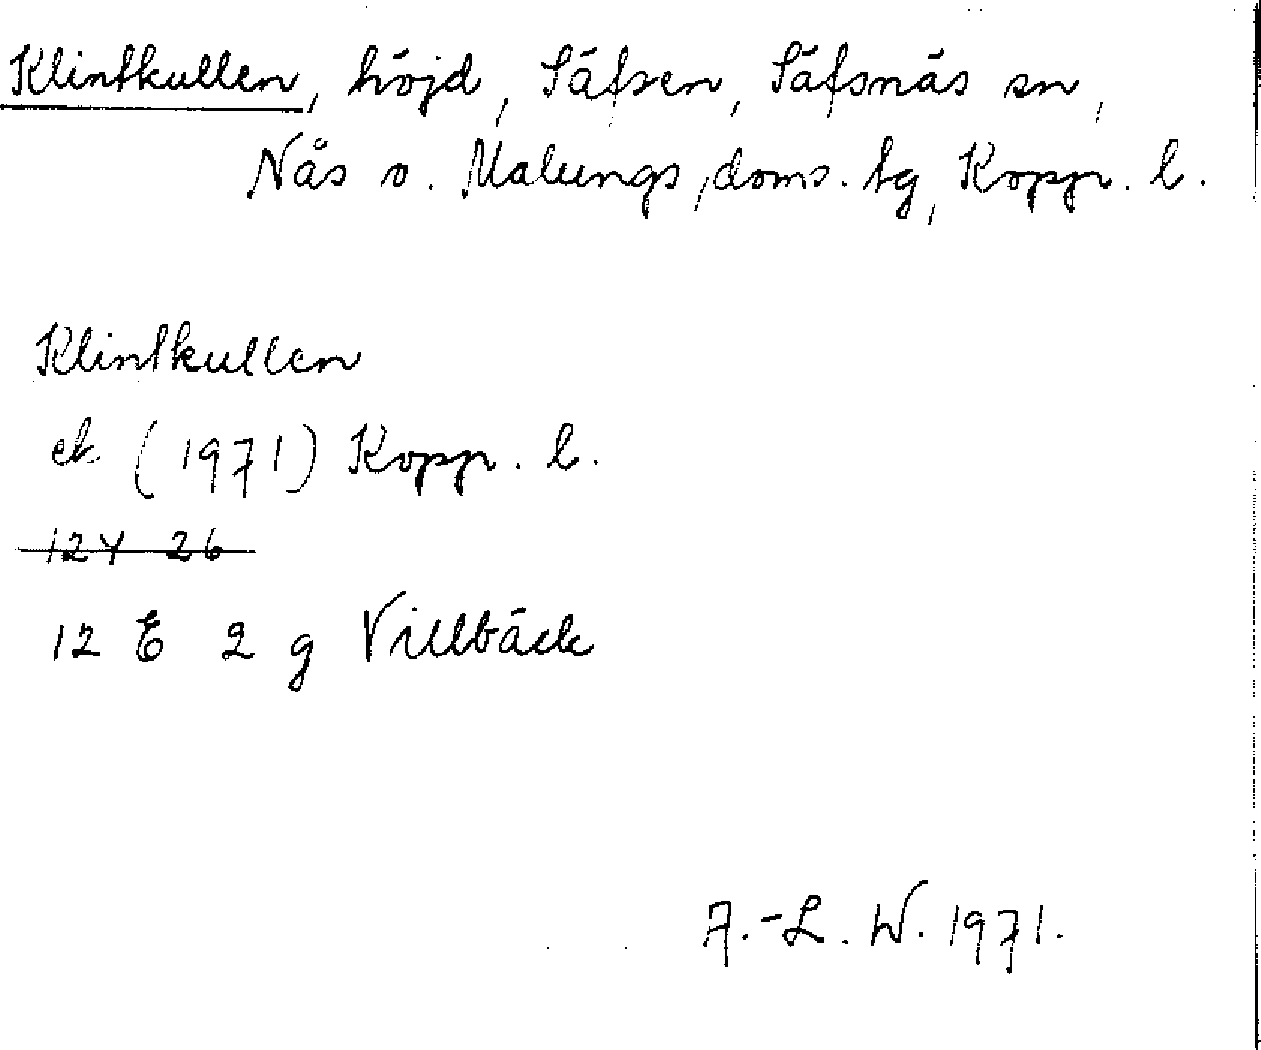 Klintkullen, höjd, Säfsen, Säfsnäs sn,
Nås o. Malungs, doms. tg, Kopp. l.
Klintkullen
ek (1971) Kopp. l.
12Y 26
12 E 2 g Villbäck
A.-L. W. 1971.